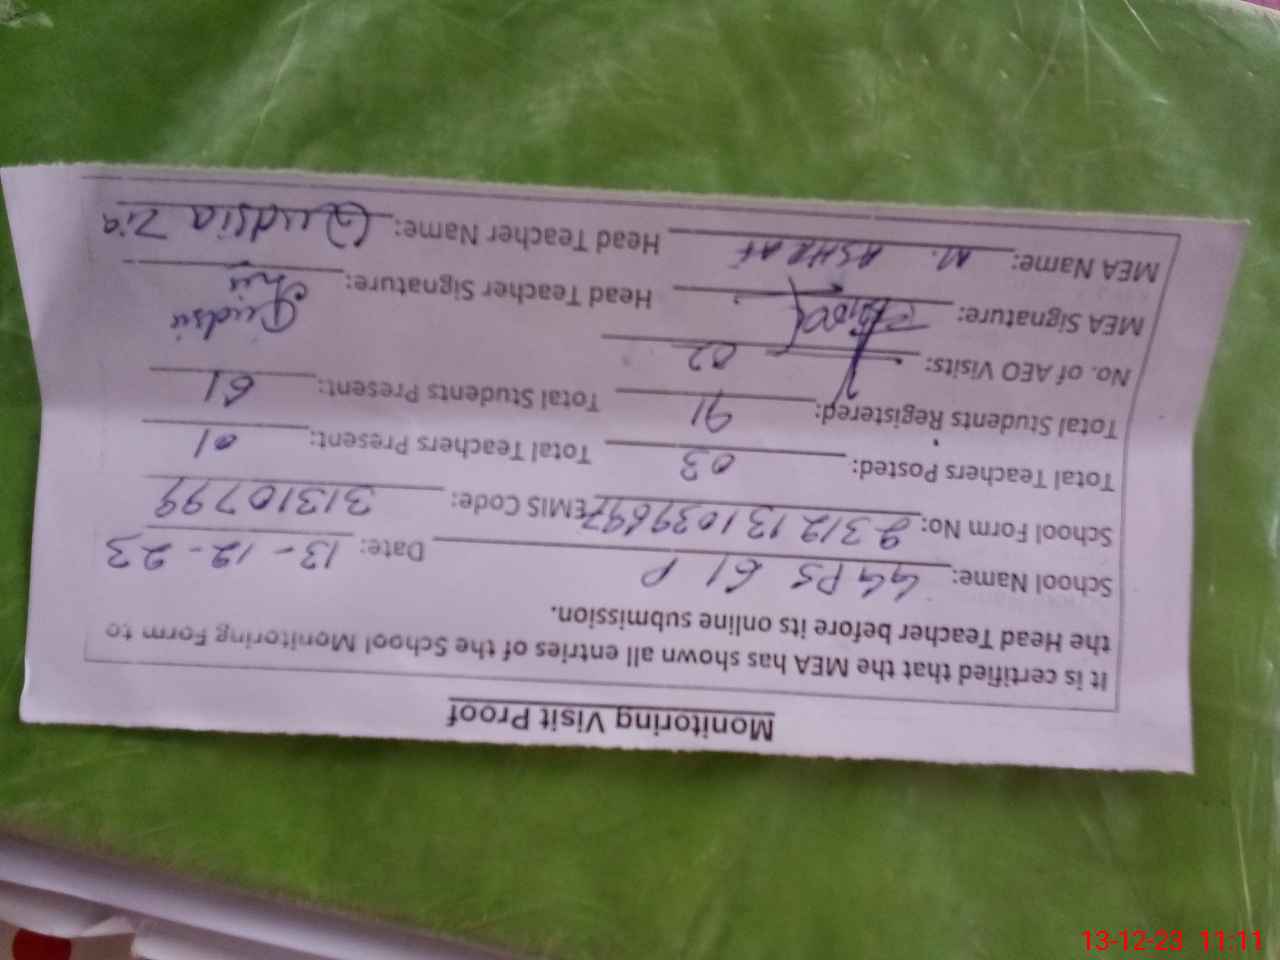 Monitoring Visit Proof
It is certified that the MEA has shown all entries of the School Monitoring Form to
the Head Teacher before its online submission.
School Name: GGPS 61 P Date: 13-12-23
School Form No: EMIS Code: 31310799
Total Teachers Posted: 03 Total Teachers Present: 01
Total Students Registered: 91 Total Students Present: 61
No. of AEO Visits: 02
MEA Signature: Head Teacher Signature: Qudsia Zia
MEA Name: M. ASHRAF Head Teacher Name: Qudsia Zia
13-12-23 11:11